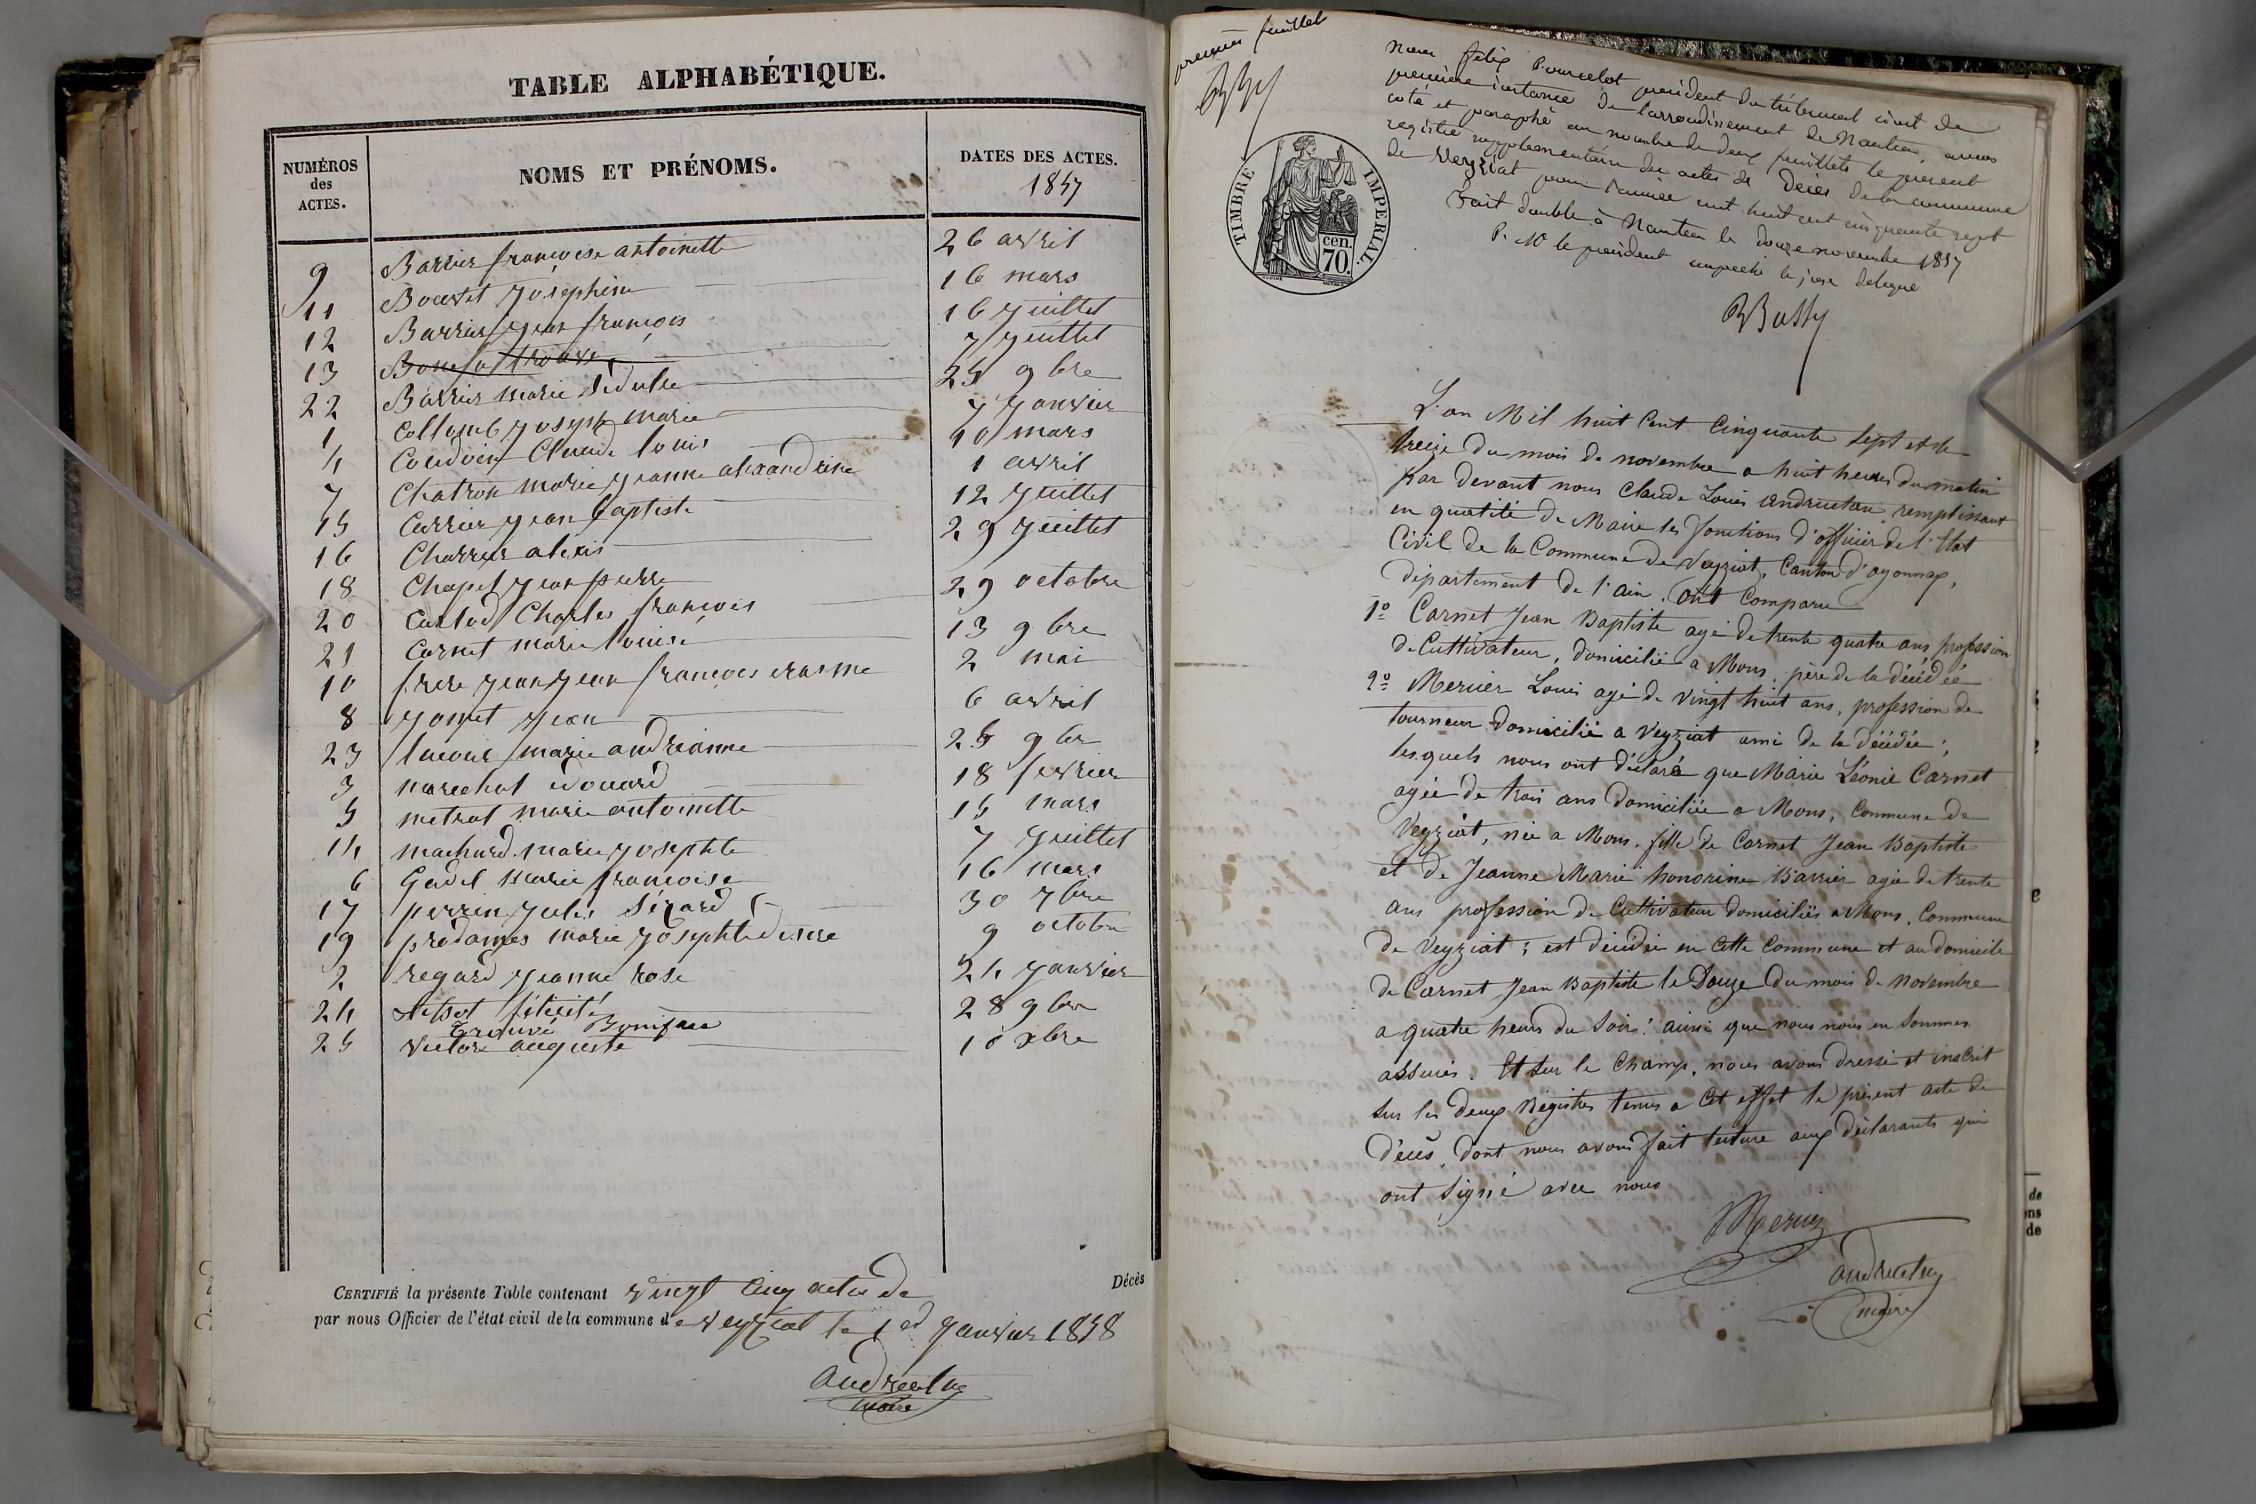 TABLE ALPHABÉTIQUE.
NUMÉROS des ACTES. NOMS ET PRÉNOMS. DATES DES ACTES. 1857
9 Barrier françoise antoinette 26 avril
11 Bourset Josephine 16 mars
12 Barrier Jean françois 16 Juillet
13 7 Juillet
22 Barrier marie 25 9bre
1 Collomb Joseph marie 7 Janvier
4 Claude louis 10 mars
7 Chatron marie Jeanne alexandrine 1 avril
15 Carrier Jean baptiste 12 Juillet
16 Charrier alexis 29 Juillet
18 Chapel Jean pierre
20 Carlod Charles françois 29 octobre
21 Carnet marie louise 13 9bre
10 frere Jean Jean françois erasme 2 mai
8 Jomet Jean 6 avril
23 lacour marie andreanne 25 9br
3 marechal edouard 18 fevrier
5 metrat marie antoinette 15 mars
14 machurd marie Josephte 7 Juillet
6 Godel marie françoise 16 mars
17 perrin Jules Sézard 30 7bre
19 prodames marie Josephte desire 9 octobre
2 regard Jeanne rose 24 Janvier
24 tissot félicité 28 9bre
trouvé Boniface
25 Victor auguste 10 xbre
CERTIFIÉ la présente Table contenant vingt cinq actes de Décès
par nous Officier de l'état civil de la commune de veyziat le 1er Janvier 1858
Andruetan
maire
premier feuillet
TIMBRE IMPÉRIAL.
cen. 70.
Nous félix Pourcelot président du tribunal civil de
première instance de l'arrondissement de Nantua, avons
coté et paraphé au nombre de deux feuillets le présent
registre supplémentaire des actes de Décès de la commune
de Veyziat pour l'année mil huit cent cinquante sept
Fait double à Nantua le douze novembre 1857
P. Mr le président empeché le juge délégué
BBussy
L'an Mil huit Cent Cinquante Sept et le
treize du mois de novembre a huit heures du matin
par devant nous Claude Louis andruetan, remplissant
en qualité de Maire les fonctions d'officier de l'Etat
Civil de la Commune de Veyziat, Canton d'oyonnax,
département de l'ain. Ont Comparu
1º Carnet Jean Baptiste agé de trente quatre ans profession
de Cultivateur, domicilié a Mons, père de la décédée
2º Mercier Louis agé de vingt huit ans, profession de
tourneur domicilié a Veyziat ami de la décédée;
lesquels nous ont déclaré que Marie Léonie Carnet
agée de trois ans domiciliée a Mons, Commune de
Veyziat, née a Mons, fille de Carnet Jean Baptiste
et de Jeanne Marie honorine Barrier agée de trente
ans profession de Cultivateur domiciliés a Mons, Commune
de Veyziat; est décédée en Cette Commune et au domicile
de Carnet Jean Baptiste le Douze du mois de Novembre
a quatre heures du Soir: ainsi que nous nous en Sommes
assurés. Et Sur le Champ, nous avons dressé et inscrit
Sur les deux Régistres tenus a Cet effet le présent acte de
décès, dont nous avons fait lecture aux déclarants qui
ont Signé avec nous
Mercier
Andruetan
maire
de
ons
de